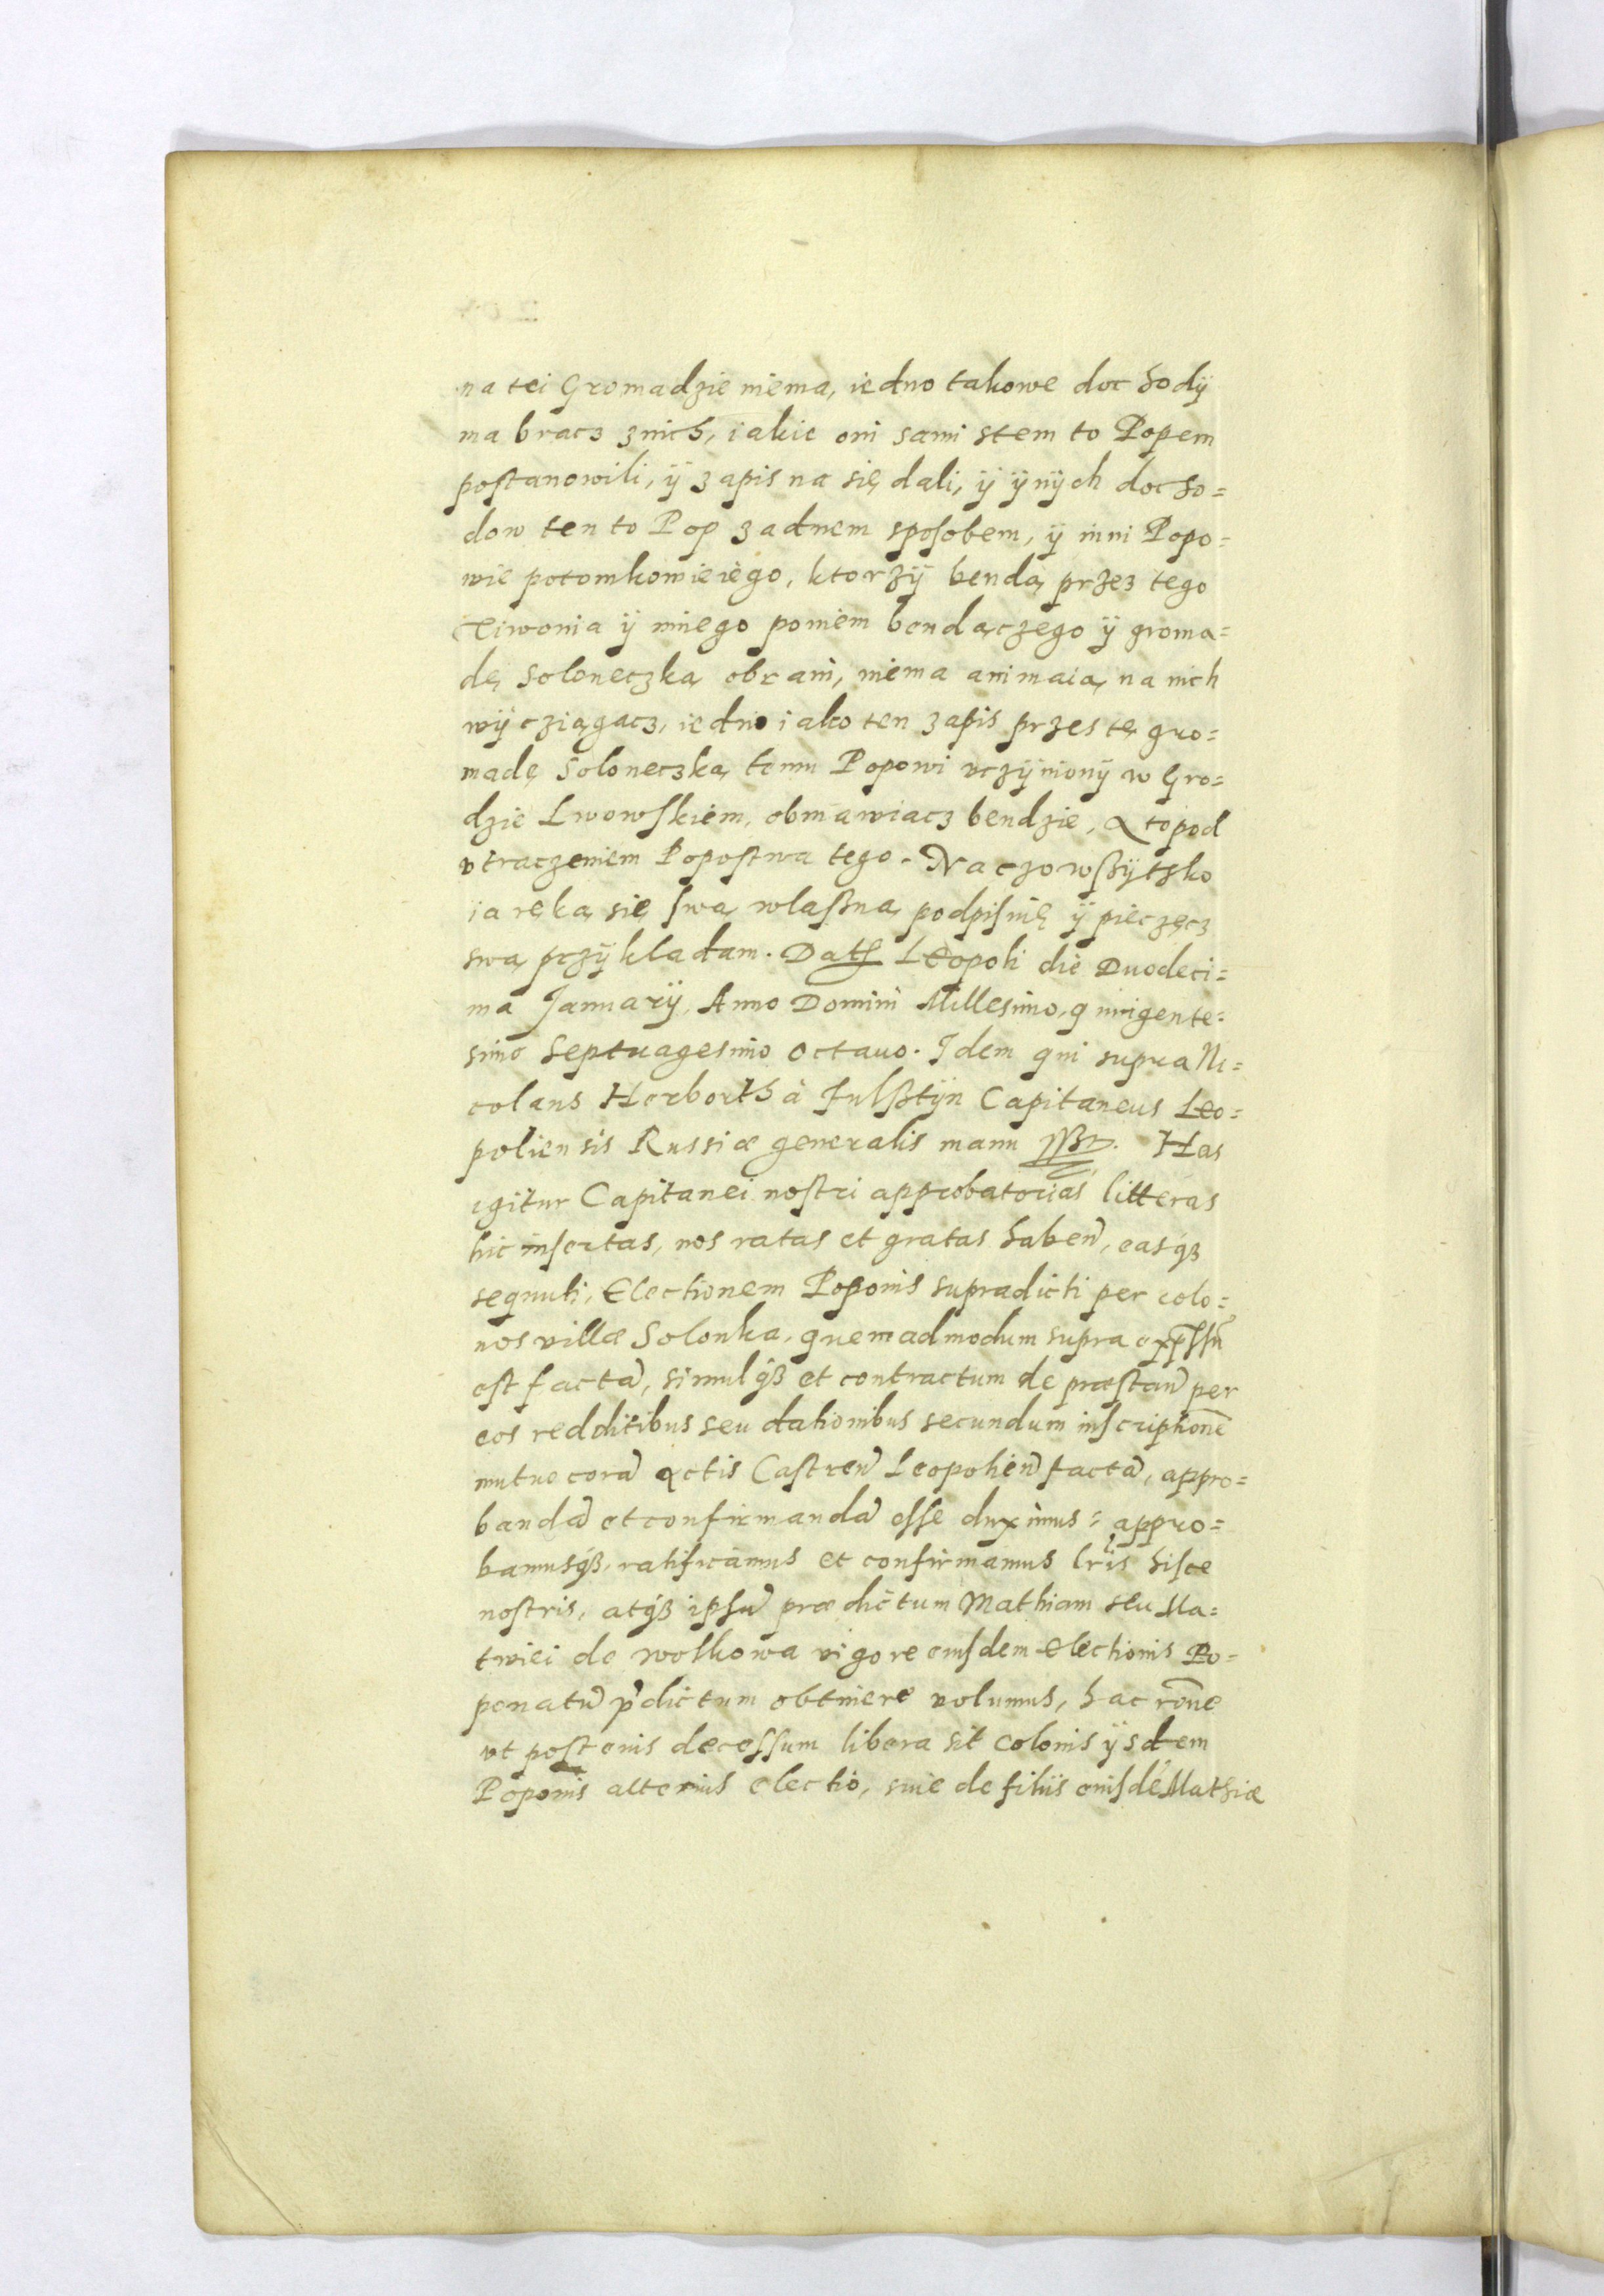 na tei Gromadzie niema, iedno takowe dochodÿ
ma bracz znich, iakie oni sami stem to Popem
postanowili, ÿ zapis na się dali, ÿ ÿnÿch docho=
dow ten to Pop zadnem sposobem, ÿ inni Popo=
wie potomkowie iego, ktorzÿ bendą przez tego
Ciwonia ÿ innego poniem bendączego ÿ groma=
dę Soloneczką obrani, niema ani maią na nich
wÿcziągacz, iedno iako ten zapis przes tę gro=
madę Soloneczką temu Popowi vczÿnionÿ w Gro=
dzie Lwowskiem, obmawiacz bendzie, A to pod
vtraczeniem Popostwa tego. Na czo wßÿtsko
ia ręką się swą wlaßną podpisuię ÿ pieczęcz
swą przÿkladam. Dat Leopoli die Duodeci=
ma Januarÿ, Anno Domini Millesimo, quingente=
simo Septuagesimo octauo. Idem qui supra Ni=
colaus Herborth à Fulßtÿn Capitaneus Leo=
poliensis Russiæ generalis manu ßßt. Has
igitur Capitanei nostri approbatorias litteras
hic insertas, nos ratas et gratas haben̄, easqȝ
sequuti, Electionem Poponis supradicti per colo=
nos villæ Solonka, quemadmodum supra exp̄ssū
est factā, simulqȝ et contractum de præstan̄ per
eos redditibus seu dationibus secundum inscriptionē
mutue corā Actis Castren̄ Leopolien̄ factā, appro=
bandā et confirmandā esse duximus: appro=
bamusqȝ, ratificamus et confirmamus lr̄is hisce
nostris, atqȝ ipsū prædictum Mathiam seu Ma=
twiei de Wolkowa vigore eiusdem electionis Po=
ponatū p̄dictum obtinere volumus, hac rōne
vt post eius decessum libera sit colonis ÿsdem
Poponis alterius electio, siue de filiis eiusdē Mathiæ